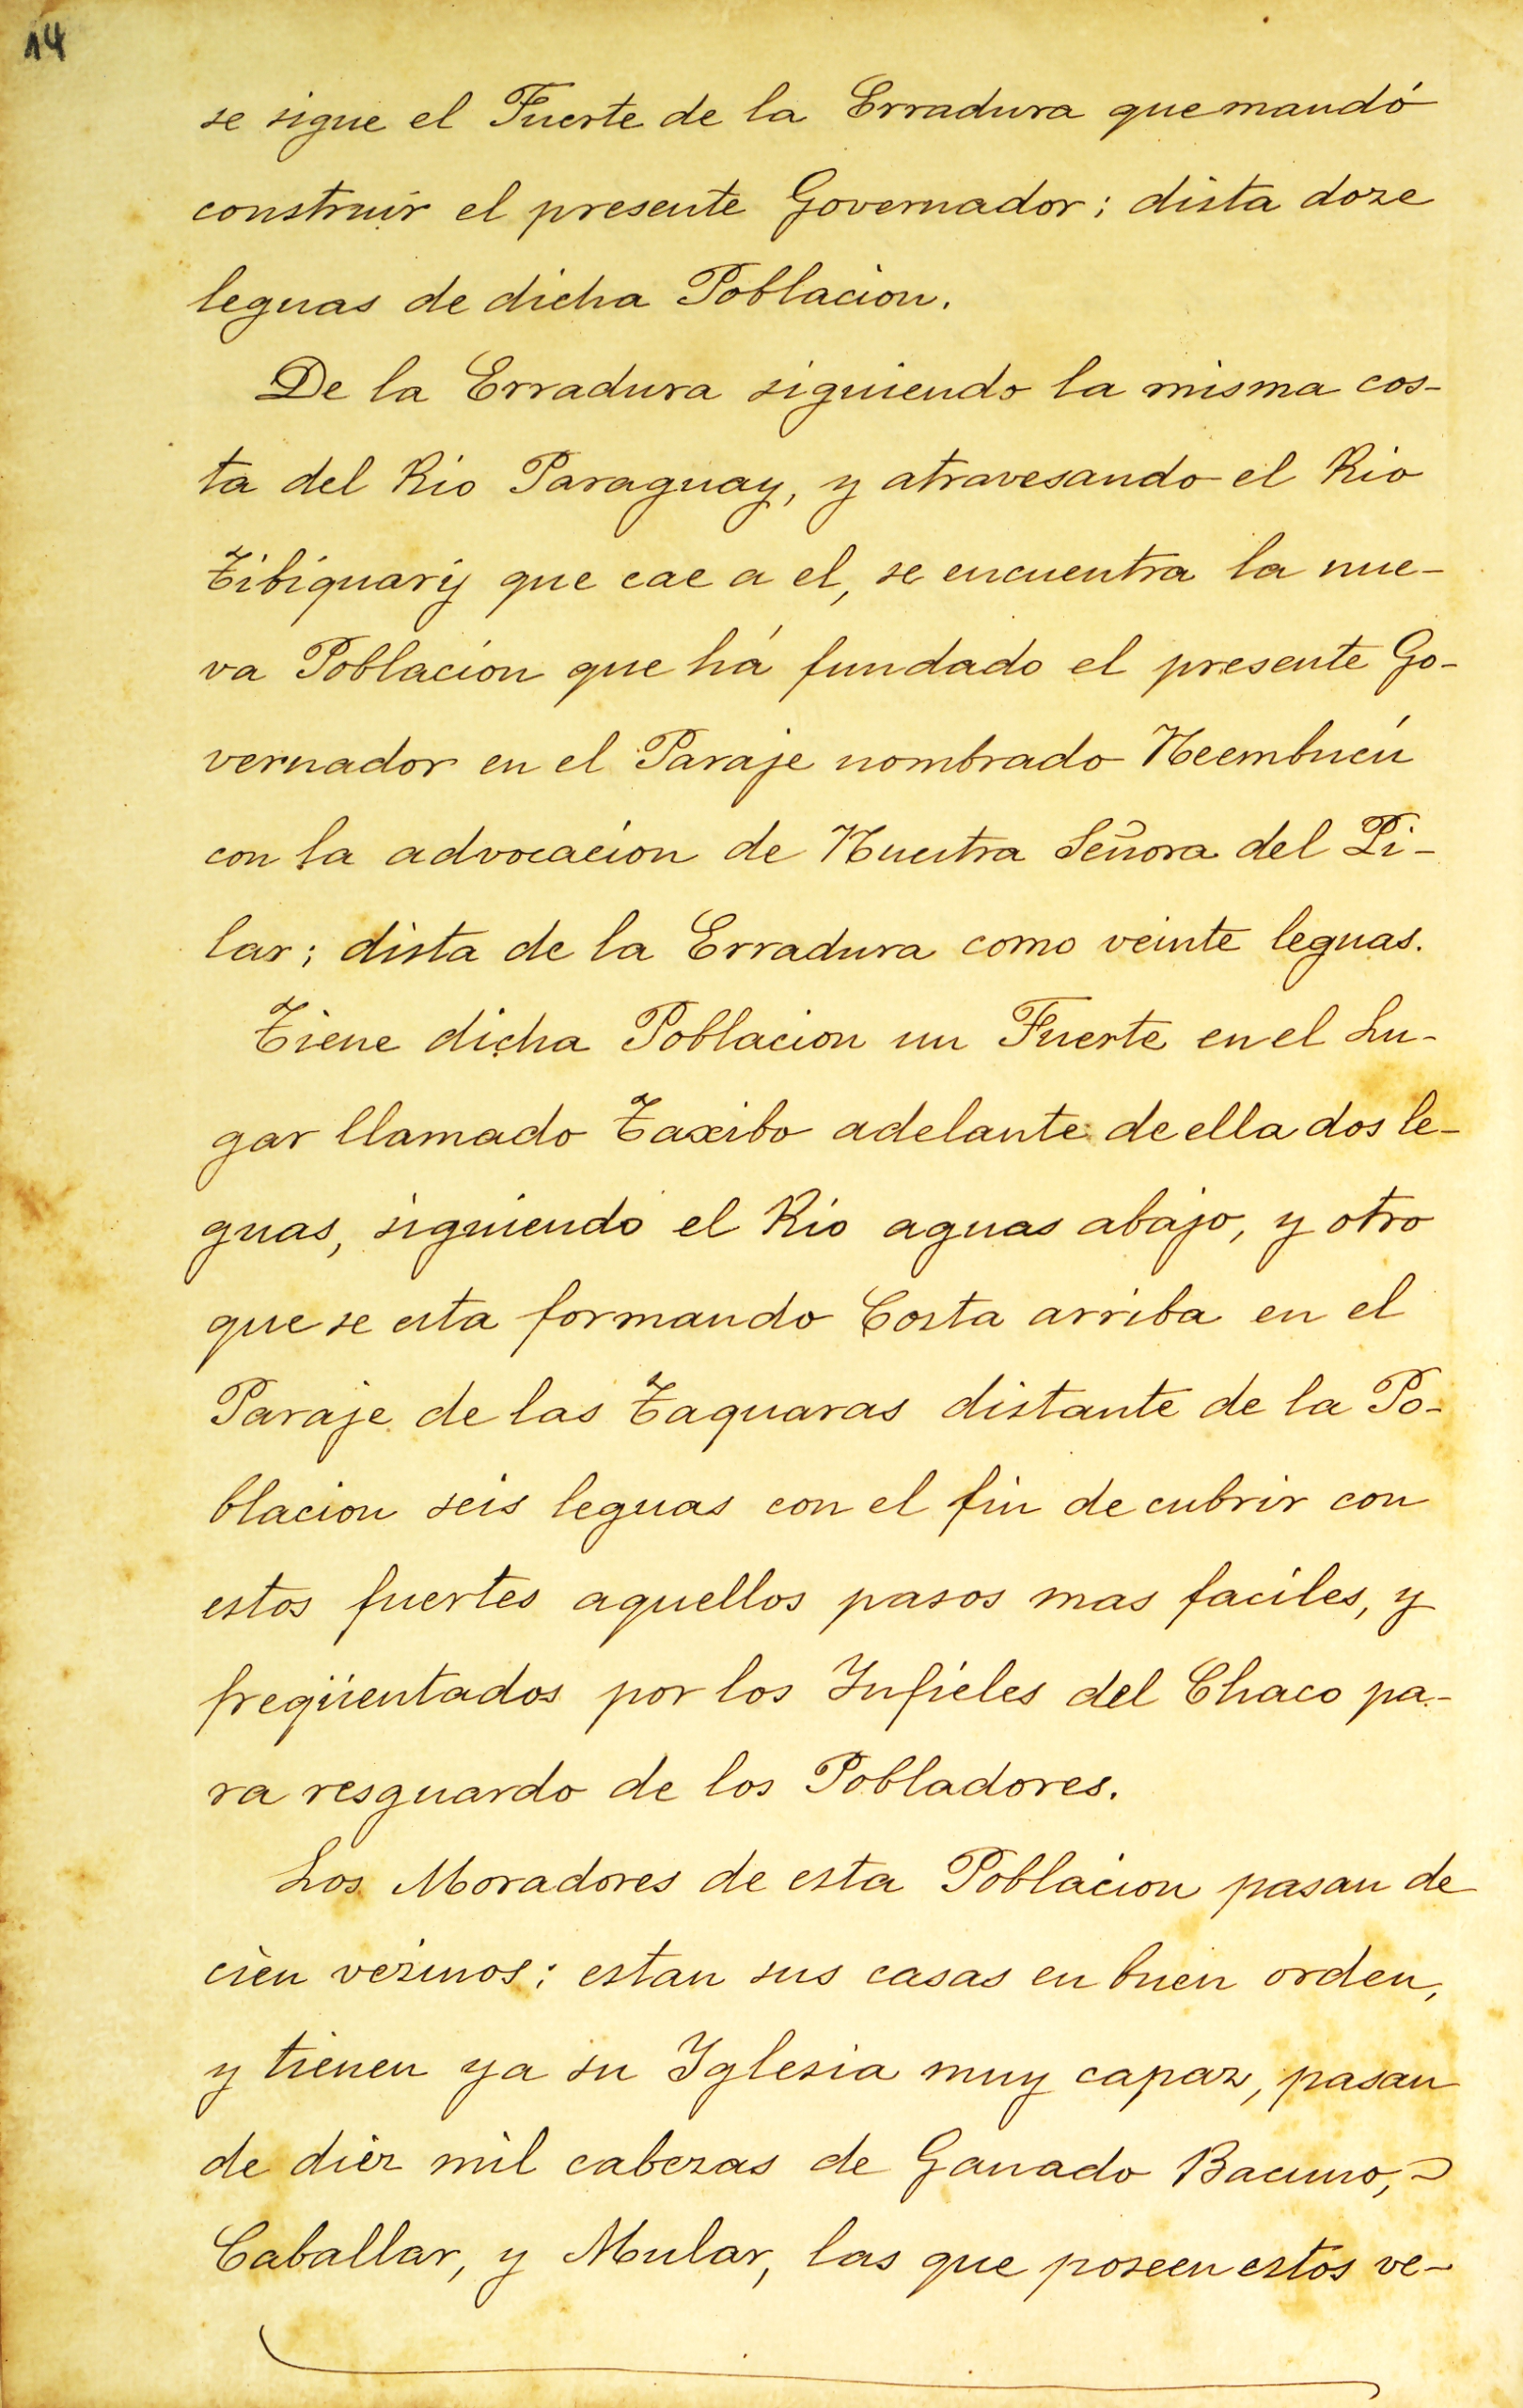 14
se sigue el Fuerte de la Erradura que mandó
construir el presente Governador; dista doze
leguas de dicha Poblacion.
De la Erradura siguiendo la misma cos-
ta del Rio Paraguay, y atravesando el Rio
Tibiquary que cae a el, se encuentra la nue-
va Poblacion que há fundado el presente Go-
vernador en el Paraje nombrado Neembucú
con la advocacion de Nuestra Señora del Pi-
lar; dista de la Erradura como veinte leguas.
Tiene dicha Poblacion un Fuerte en el Lu-
gar llamado Taxibo adelante de ella dos le-
guas, siguiendo el Rio aguas abajo, y otro
que se esta formando Costa arriba en el
Paraje de las Taquaras distante de la Po-
blacion seis leguas con el fin de cubrir con
estos fuertes aquellos pasos mas faciles, y
freqüentados por los Infieles del Chaco pa-
ra resguardo de los Pobladores.
Los Moradores de esta Poblacion pasan de
cien vezinos; estan sus casas en buen orden,
y tienen ya su Iglesia muy capaz, pasan
de diez mil cabezas de Ganado Bacuno,
Caballar, y Mular, las que poseen estos ve-